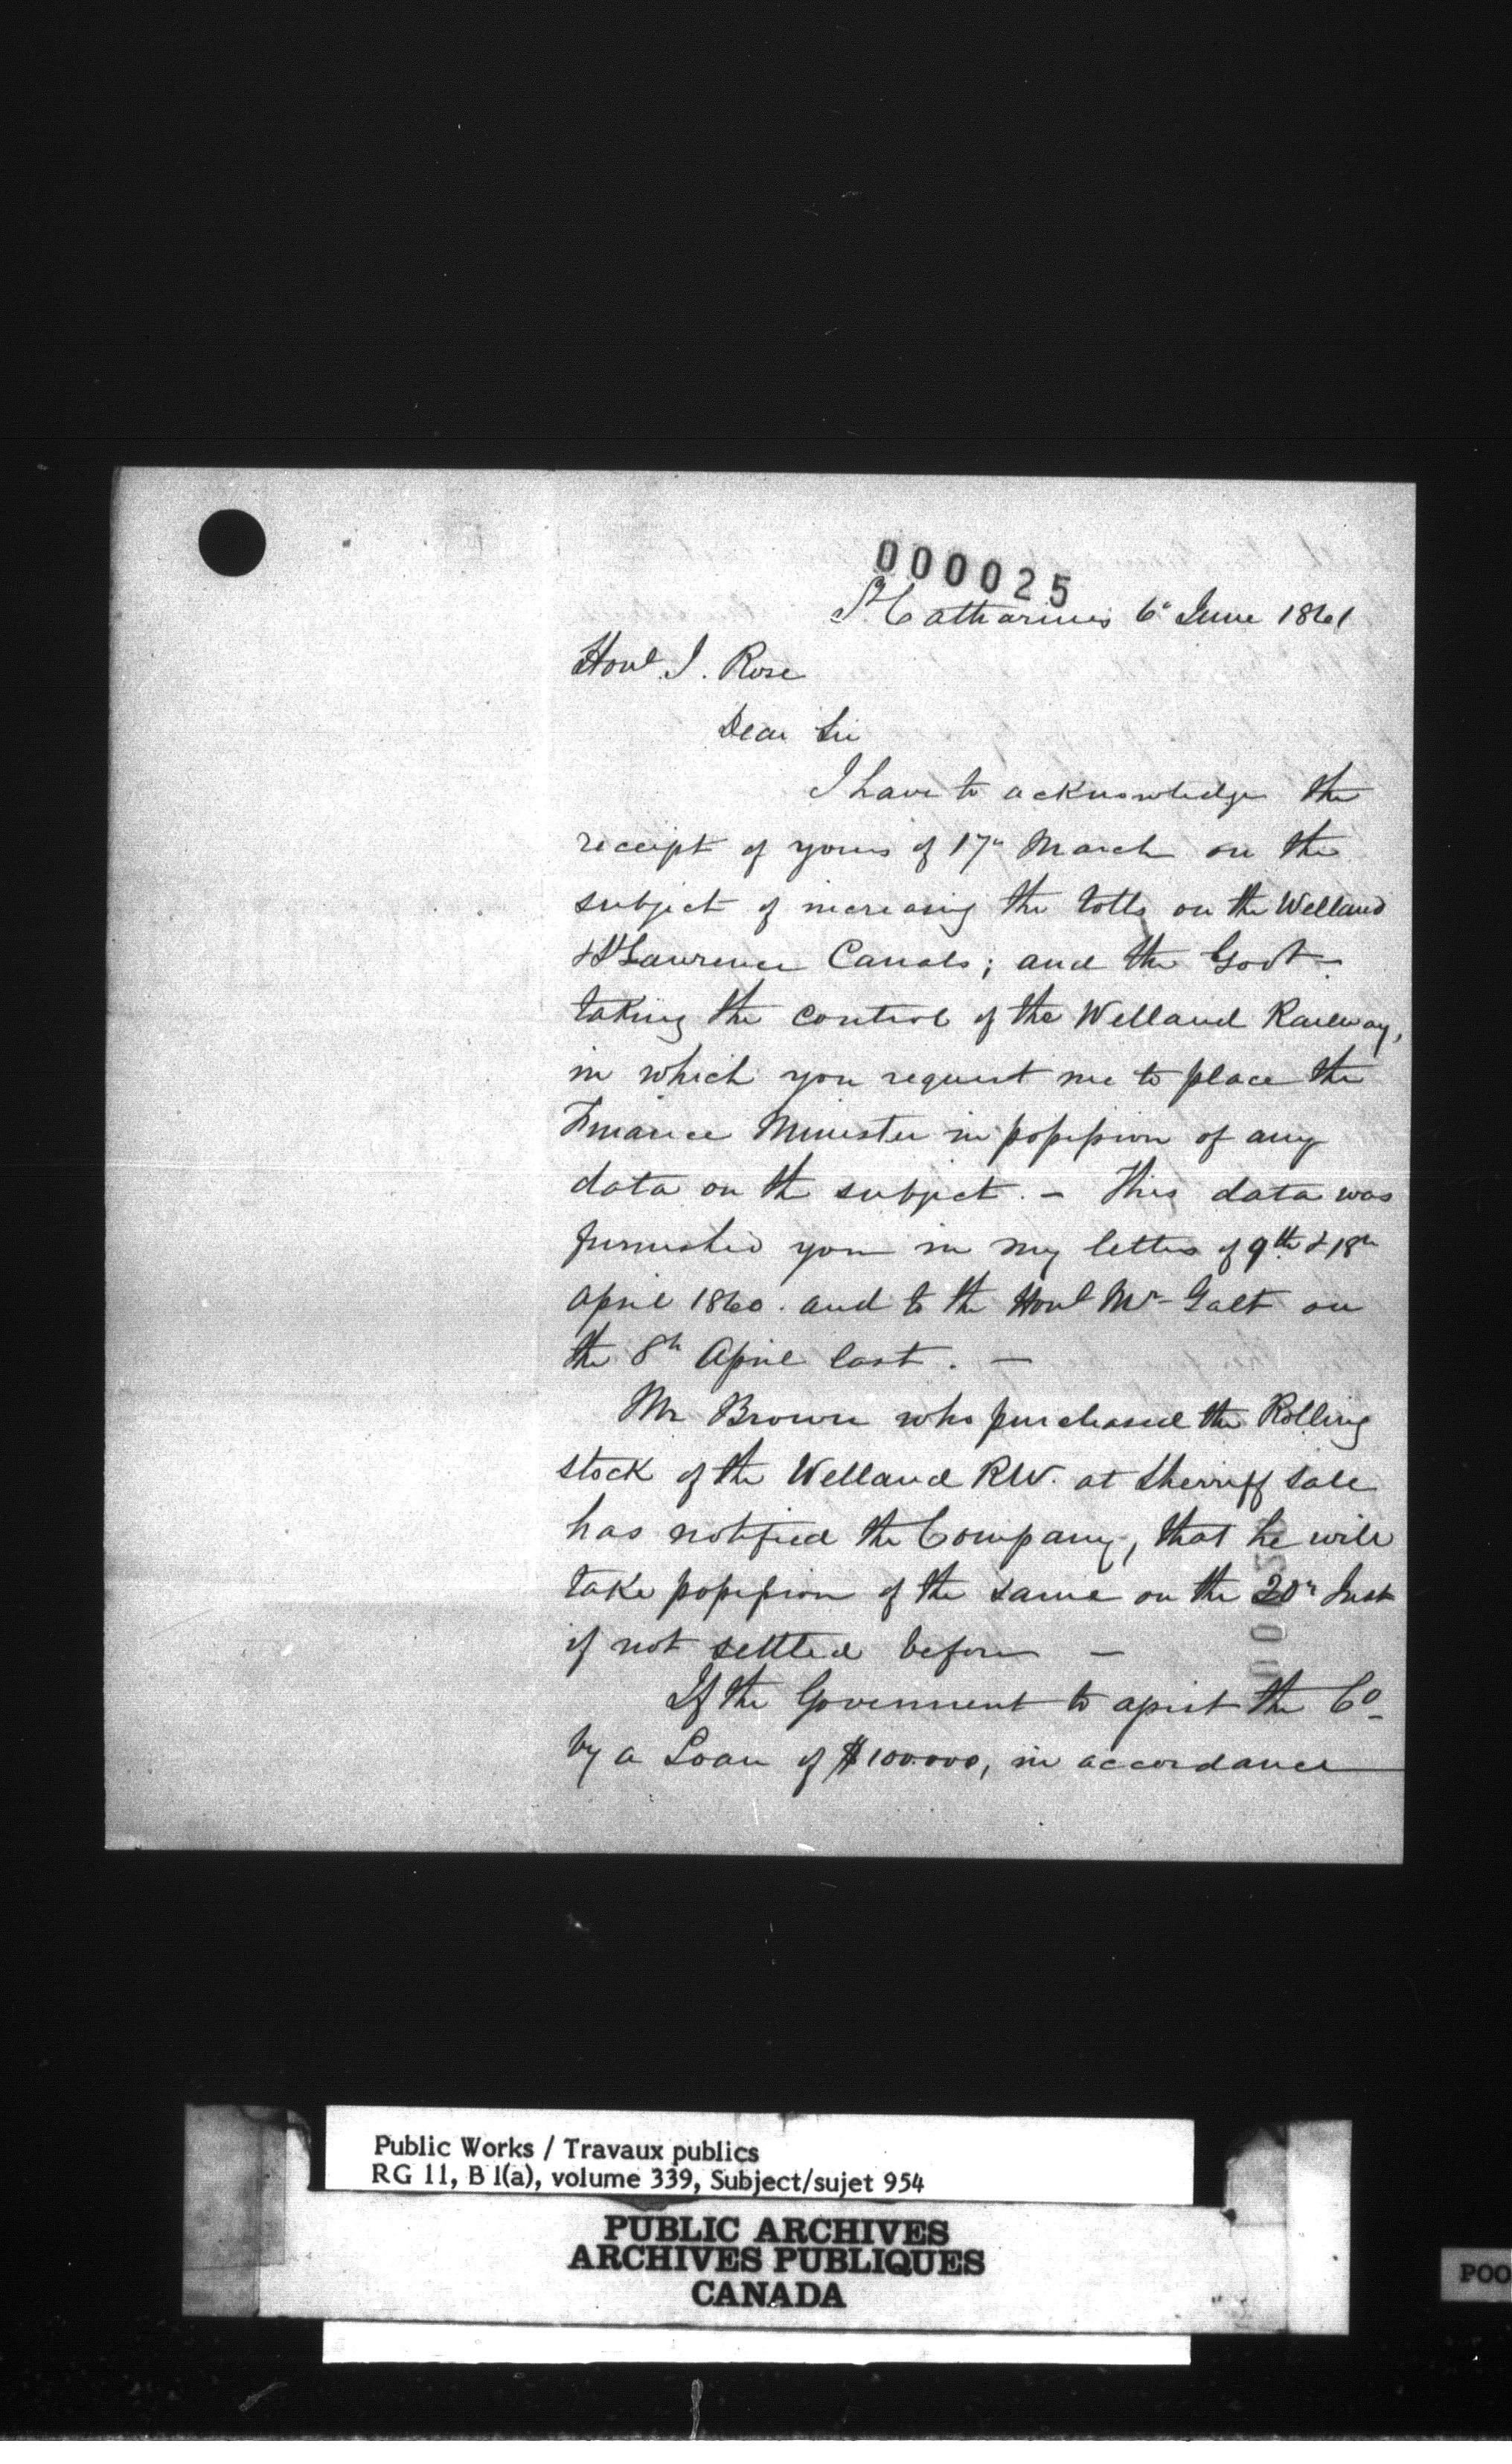 000025
St Catharines 6th June 1861
Honl. J. Rose
Dear Sir
I have to acknowledge the
receipt of yours of 17th March on the
subject of increasing the tolls on the Welland
& St Lawrence Canals; and the Govt-
taking the control of the Welland Railway,
in which you request me to place the
Finance Minister in possession of any
data on the subject. - This data was
furnished you in my letters of 9th & 18th
April 1860. and to the Honl Mr Galt on
the 8th April last. -
Mr Brown who purchased the Rolling
stock of the Welland RW. at Sherriff Sale
has notified the Company, that he will
take possession of the same on the 20th Inst
if not settled before -
If the Government to assist the Co
by a Loan of $100.000, in accordance
Public Works / Travaux publics
RG 11, B 1(a), volume 339, Subject/sujet 954
PUBLIC ARCHIVES
ARCHIVES PUBLIQUES
CANADA
POO